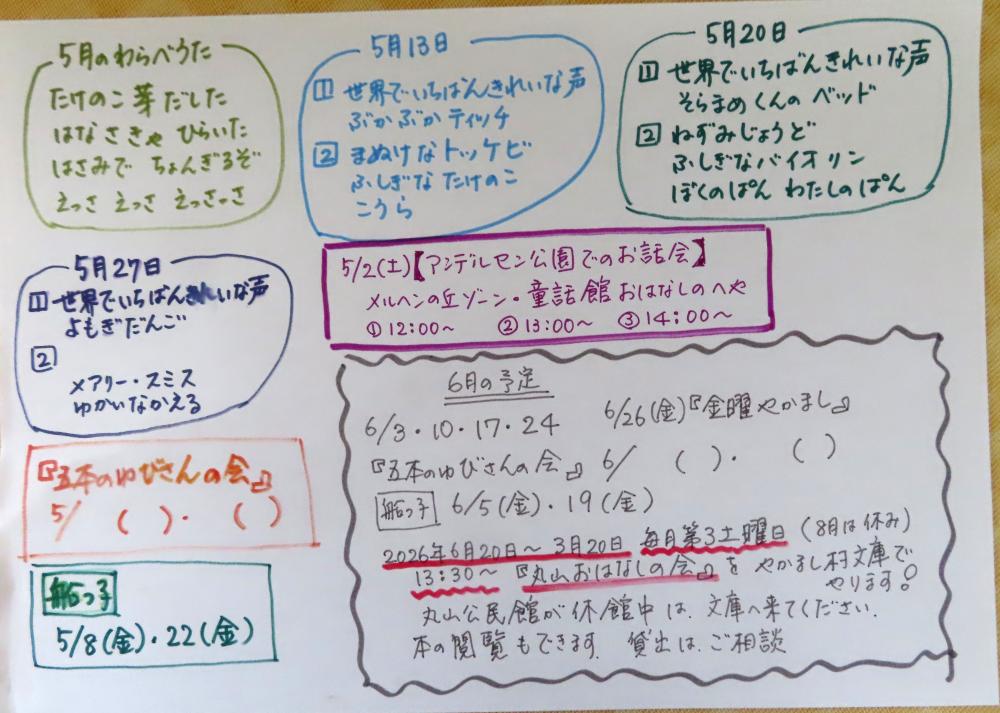 5月のわらべうた
たけのこ芽だした
はなさきゃ ひらいた
はさみで ちょんぎるぞ
えっさ えっさ えっさっさ
5月13日
① 世界でいちばんきれいな声
ぶかぶかティッチ
② まぬけなトッケビ
ふしぎな たけのこ
こうら
5月20日
① 世界でいちばんきれいな声
そらまめくんの ベッド
② ねずみじょうど
ふしぎなバイオリン
ぼくのぱん わたしのぱん
5月27日
① 世界でいちばんきれいな声
よもぎだんご
②
メアリー・スミス
ゆかいなかえる
5/2(土)【アンデルセン公園でのお話会】
メルヘンの丘ゾーン・童話館 おはなしのへや
①12:00~ ②13:00~ ③14:00~
『五本のゆびさんの会』
5/ ( )・ ( )
船っ子
5/8(金)・22(金)
6月の予定
6/3・10・17・24 6/26(金)『金曜やかまし』
『五本のゆびさんの会』 6/ ( )・ ( )
船っ子 6/5(金)・19(金)
2026年6月20日~3月20日 毎月第3土曜日 (8月は休み)
13:30~ 『丸山おはなしの会』を やかまし村文庫で
やります!
丸山公民館が休館中は、文庫へ来てください.
本の閲覧もできます. 貸出は、ご相談